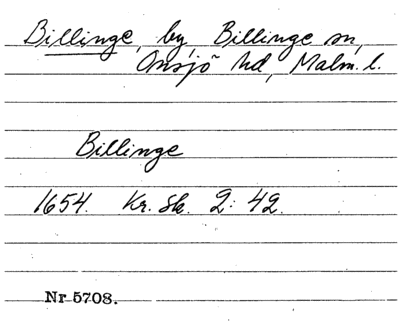 Billinge, by, Billinge sn,
Onsjö hd, Malm. l.
Billinge
1654. Kr. Sk. 2: 42.
Nr 5708.